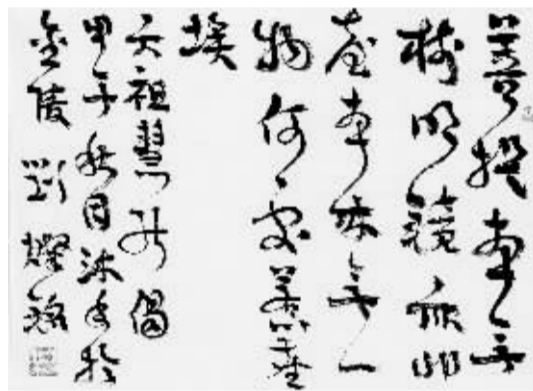 菩提本无
樹明鏡亦非
臺本来无一
物何處惹塵
埃
六祖慧能偈
甲子秋月沐手於
金陵劉